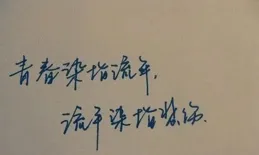 青春染指流年,
流年染指数伤.